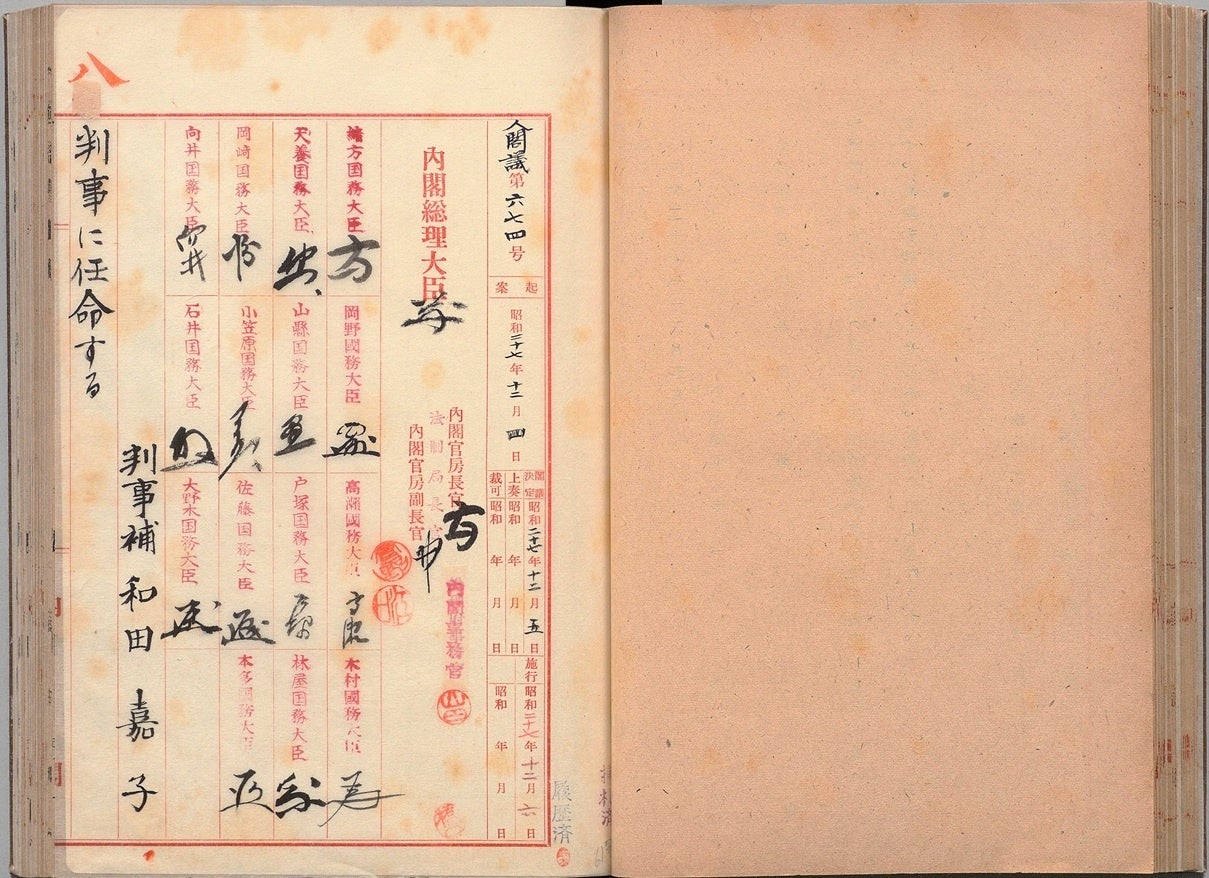 八
人閣議第六七四号
起案
昭和二十七年十二月四日
閣議決定昭和二十七年十二月五日
上奏昭和 年 月 日
裁可昭和 年 月 日
施行昭和二十七年十二月六日
昭和 年 月 日
内閣総理大臣
内閣官房長官
法制局長官
内閣官房副長官
内閣事務官
緒方国務大臣
岡野國務大臣
高瀬國務大臣
木村國務大臣
天養国務大臣
山縣国務大臣
戸塚国務大臣
林屋国務大臣
岡崎国務大臣
小笠原国務大臣
佐藤国務大臣
本多国務大臣
向井国務大臣
石井国務大臣
大野木国務大臣
判事補 和田嘉子
判事に任命する
履歴済